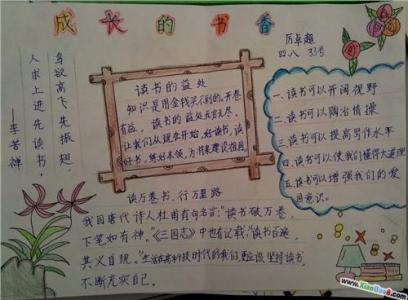 成长的书香
历卓越
四、八 33号
鸟欲高飞先振翅
人求上进先读书
——李苦禅
读书的益处
知识是用金钱买不到的。开卷
有益,读书的益处无穷无尽。
让我们从现在开始,好读书,读
好书,
一、读书可以开阔视野
二、读书可以陶冶情操
三、读书可以提高写作水平
四、读书可以使我们懂得大道理
五、读书可以增强我们的爱
国意识。
读万卷书,行万里路
我国唐代诗人杜甫有句名言:“读书破万卷,
下笔如有神。”《三国志》中也有记载:“读书百遍,
其义自现。”生活在高科技时代的我们,更应该坚持读书,
不断充实自己。
www.XiaoBao8.com